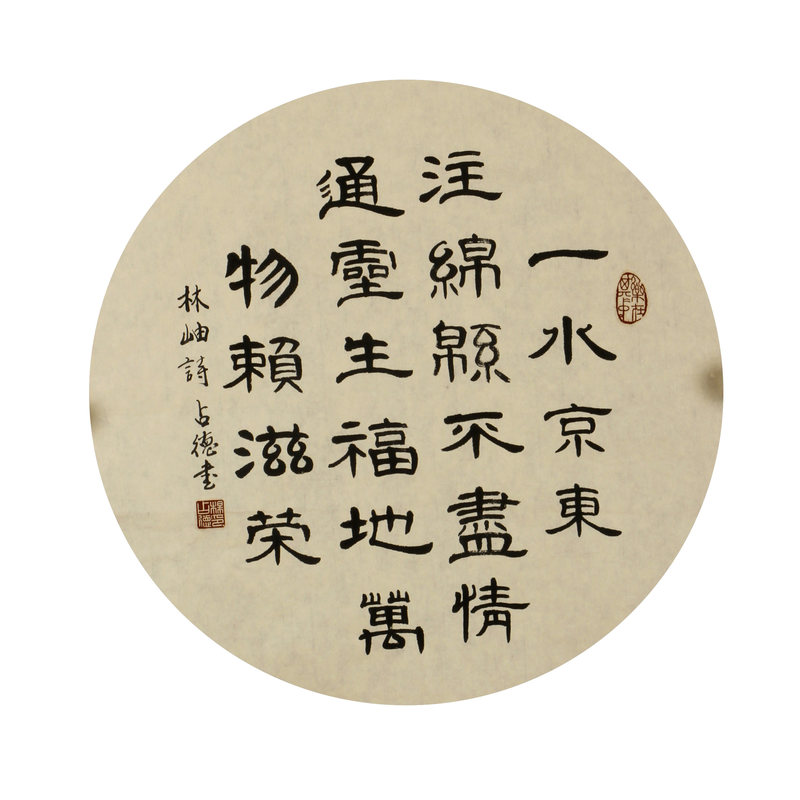 一水京東
注綿緜不盡情
通靈生福地萬
物賴滋荣
林岫詩 占德书